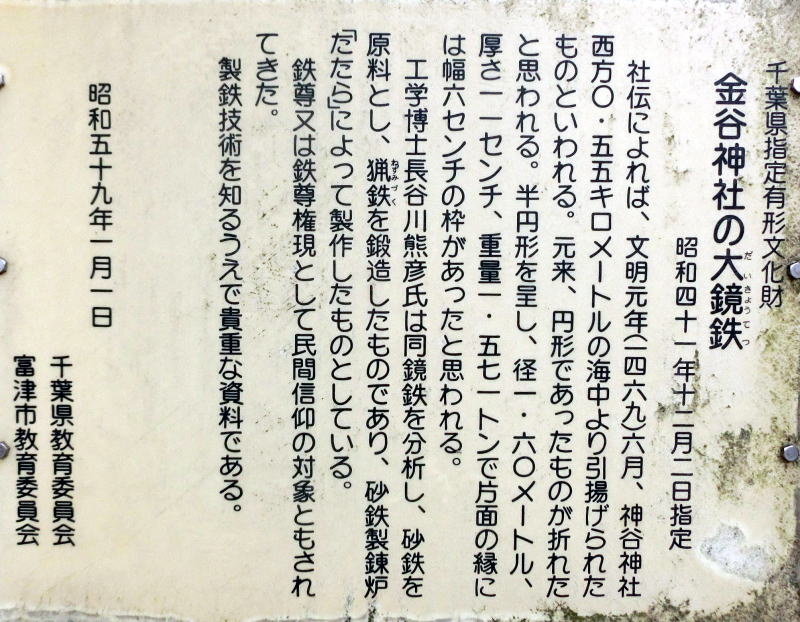 千葉県指定有形文化財
金谷神社の大鏡鉄
だいきょうてつ
昭和四十一年十二月二日指定
社伝によれば、文明元年(一四六九)六月、神谷神社
西方〇・五五キロメートルの海中より引揚げられた
ものといわれる。元来、円形であったものが折れた
と思われる。半円形を呈し、径一・六〇メートル、
厚さ一一センチ、重量一・五七一トンで片面の縁に
は幅六センチの枠があったと思われる。
工学博士長谷川熊彦氏は同鏡鉄を分析し、砂鉄を
原料とし、猟鉄を鍛造したものであり、砂鉄製錬炉
ねずみづく
「たたら」によって製作したものとしている。
鉄尊又は鉄尊権現として民間信仰の対象ともされ
てきた。
製鉄技術を知るうえで貴重な資料である。
昭和五十九年一月一日
千葉県教育委員会
富津市教育委員会